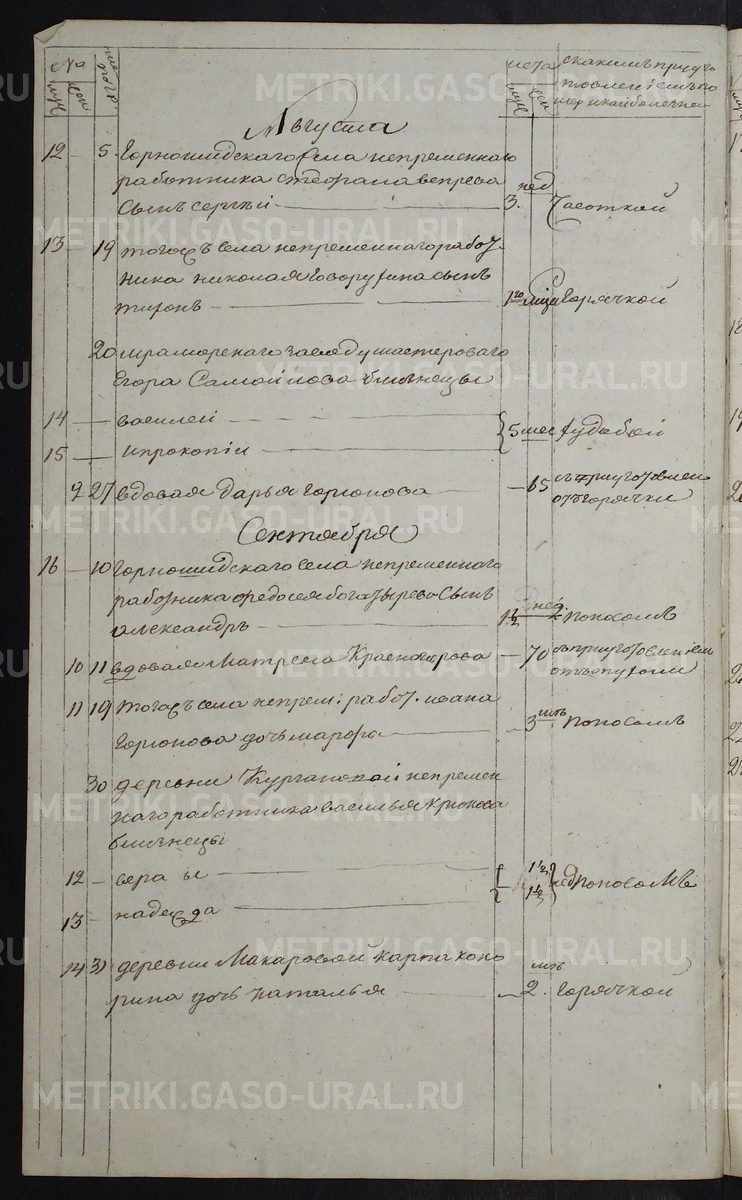 №
муж
жен
лета
муж
жен
Августа
12 — 5. Горнощидскаго села непременнаго
работника Стефана Вепрева
сынъ Сергѣй — 3. нед Чесоткой
13 — 19 тогожъ села непременнаго работ
ника Николая сынъ
Тихонъ — Горячкой
20 мраморскаго заводу мастероваго
Егора Самойлова близнецы
14 — Василей — 5 мес худобой
15 — и Прокопiй —
9 27 вдовая Дарья Горюнова — 65 съ приуготовлен
отъ горячки
Сентября
16 — 10 Горнощидскаго села непременнаго
работника Федосея Богатырева сынъ
Александръ — нед. Поносомъ
10 11 вдовая Матрена — 70 съ приуготовленiем
11 19 тогожъ села непрем: работ. Ивана
Горюнова дочь Марфа — 3 летъ Поносомъ
30 деревни Кургановой непремен
наго работника Василья Крюкова
близнецы
12 — Вера и — 1½ нед Поносомъ
13 — Надежда — 1½
14 31 деревни Макаровой Карпа Коно
рина дочь Наталья — 2. летъ Горячкой
METRIKI.GASO-URAL.RU